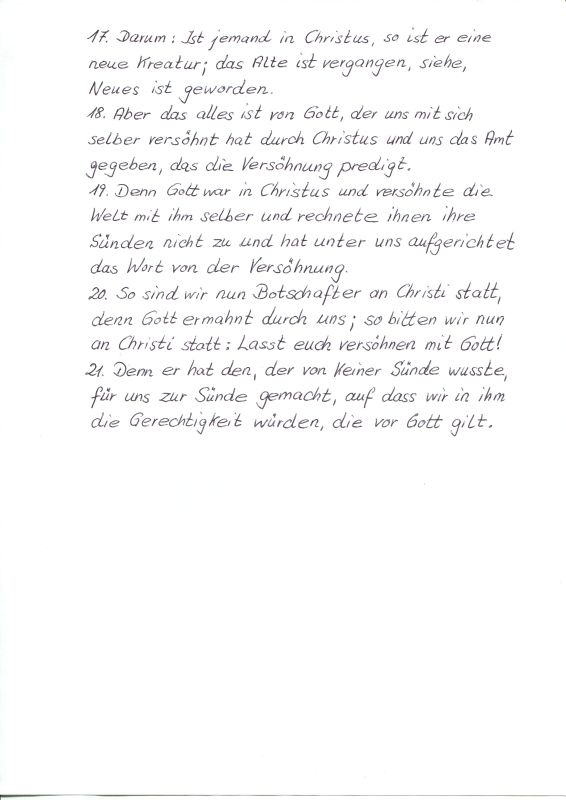 17. Darum: Ist jemand in Christus, so ist er eine
neue Kreatur; das Alte ist vergangen, siehe,
Neues ist geworden.
18. Aber das alles ist von Gott, der uns mit sich
selber versöhnt hat durch Christus und uns das Amt
gegeben, das die Versöhnung predigt.
19. Denn Gott war in Christus und versöhnte die
Welt mit ihm selber und rechnete ihnen ihre
Sünden nicht zu und hat unter uns aufgerichtet
das Wort von der Versöhnung.
20. So sind wir nun Botschafter an Christi statt,
denn Gott ermahnt durch uns; so bitten wir nun
an Christi statt: Lasst euch versöhnen mit Gott!
21. Denn er hat den, der von keiner Sünde wusste,
für uns zur Sünde gemacht, auf dass wir in ihm
die Gerechtigkeit würden, die vor Gott gilt.